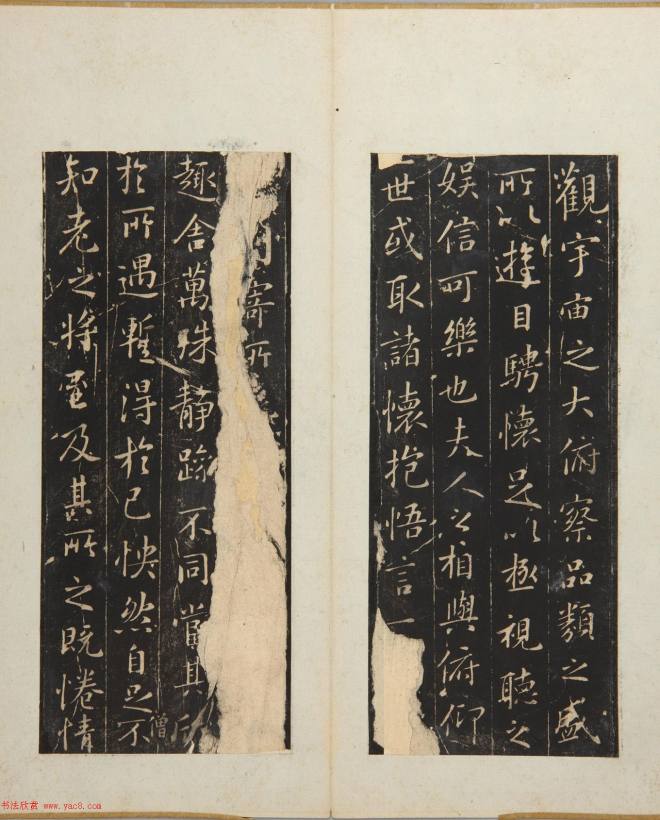 觀宇宙之大俯察品類之盛
所以遊目騁懷足以極視聽之
娛信可樂也夫人之相與俯仰
一世或取諸懷抱悟言一
寄所
趣舍萬殊静躁不同當其欣
於所遇暫得於己怏然自足不
僧
知老之將至及其所之既惓情
书法欣赏 www.yac8.com